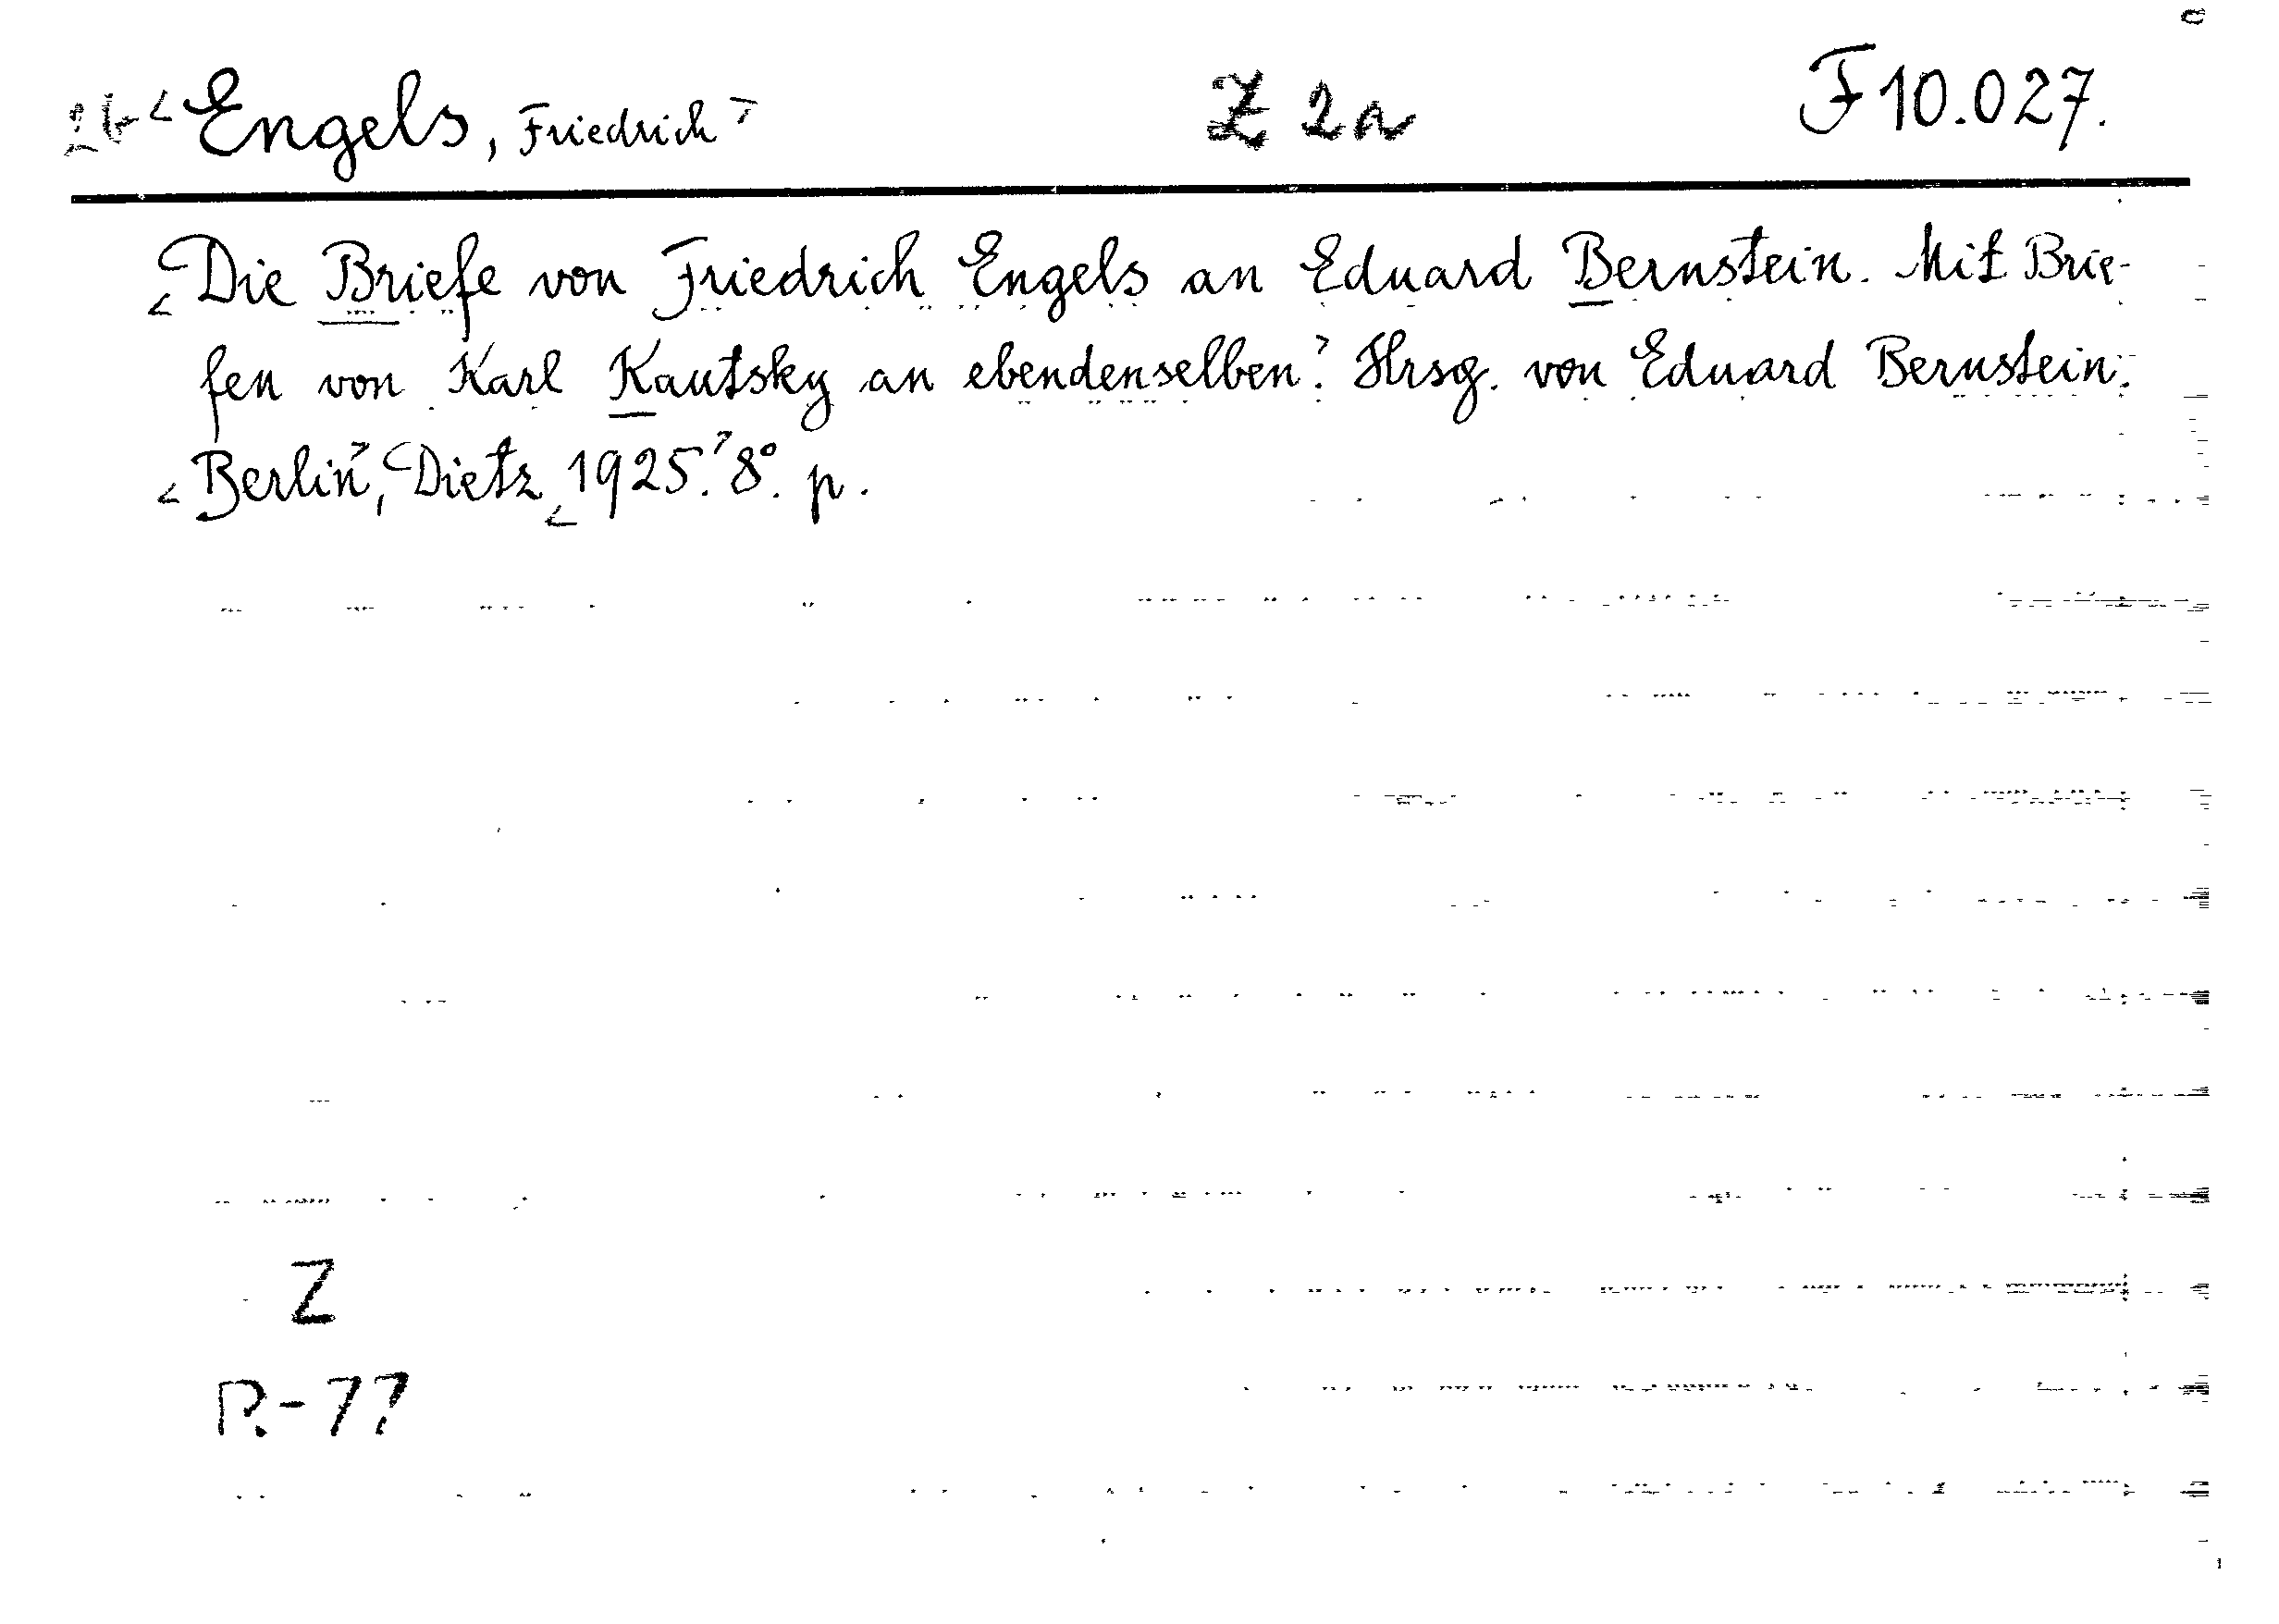 Engels, Friedrich Z 2a F 10.027.
Die Briefe von Friedrich Engels an Eduard Bernstein. Mit Brie-
fen von Karl Kautsky an ebendenselben. Hrsg. von Eduard Bernstein.
Berlin, Dietz, 1925. 8°. p.
Z
P.-77